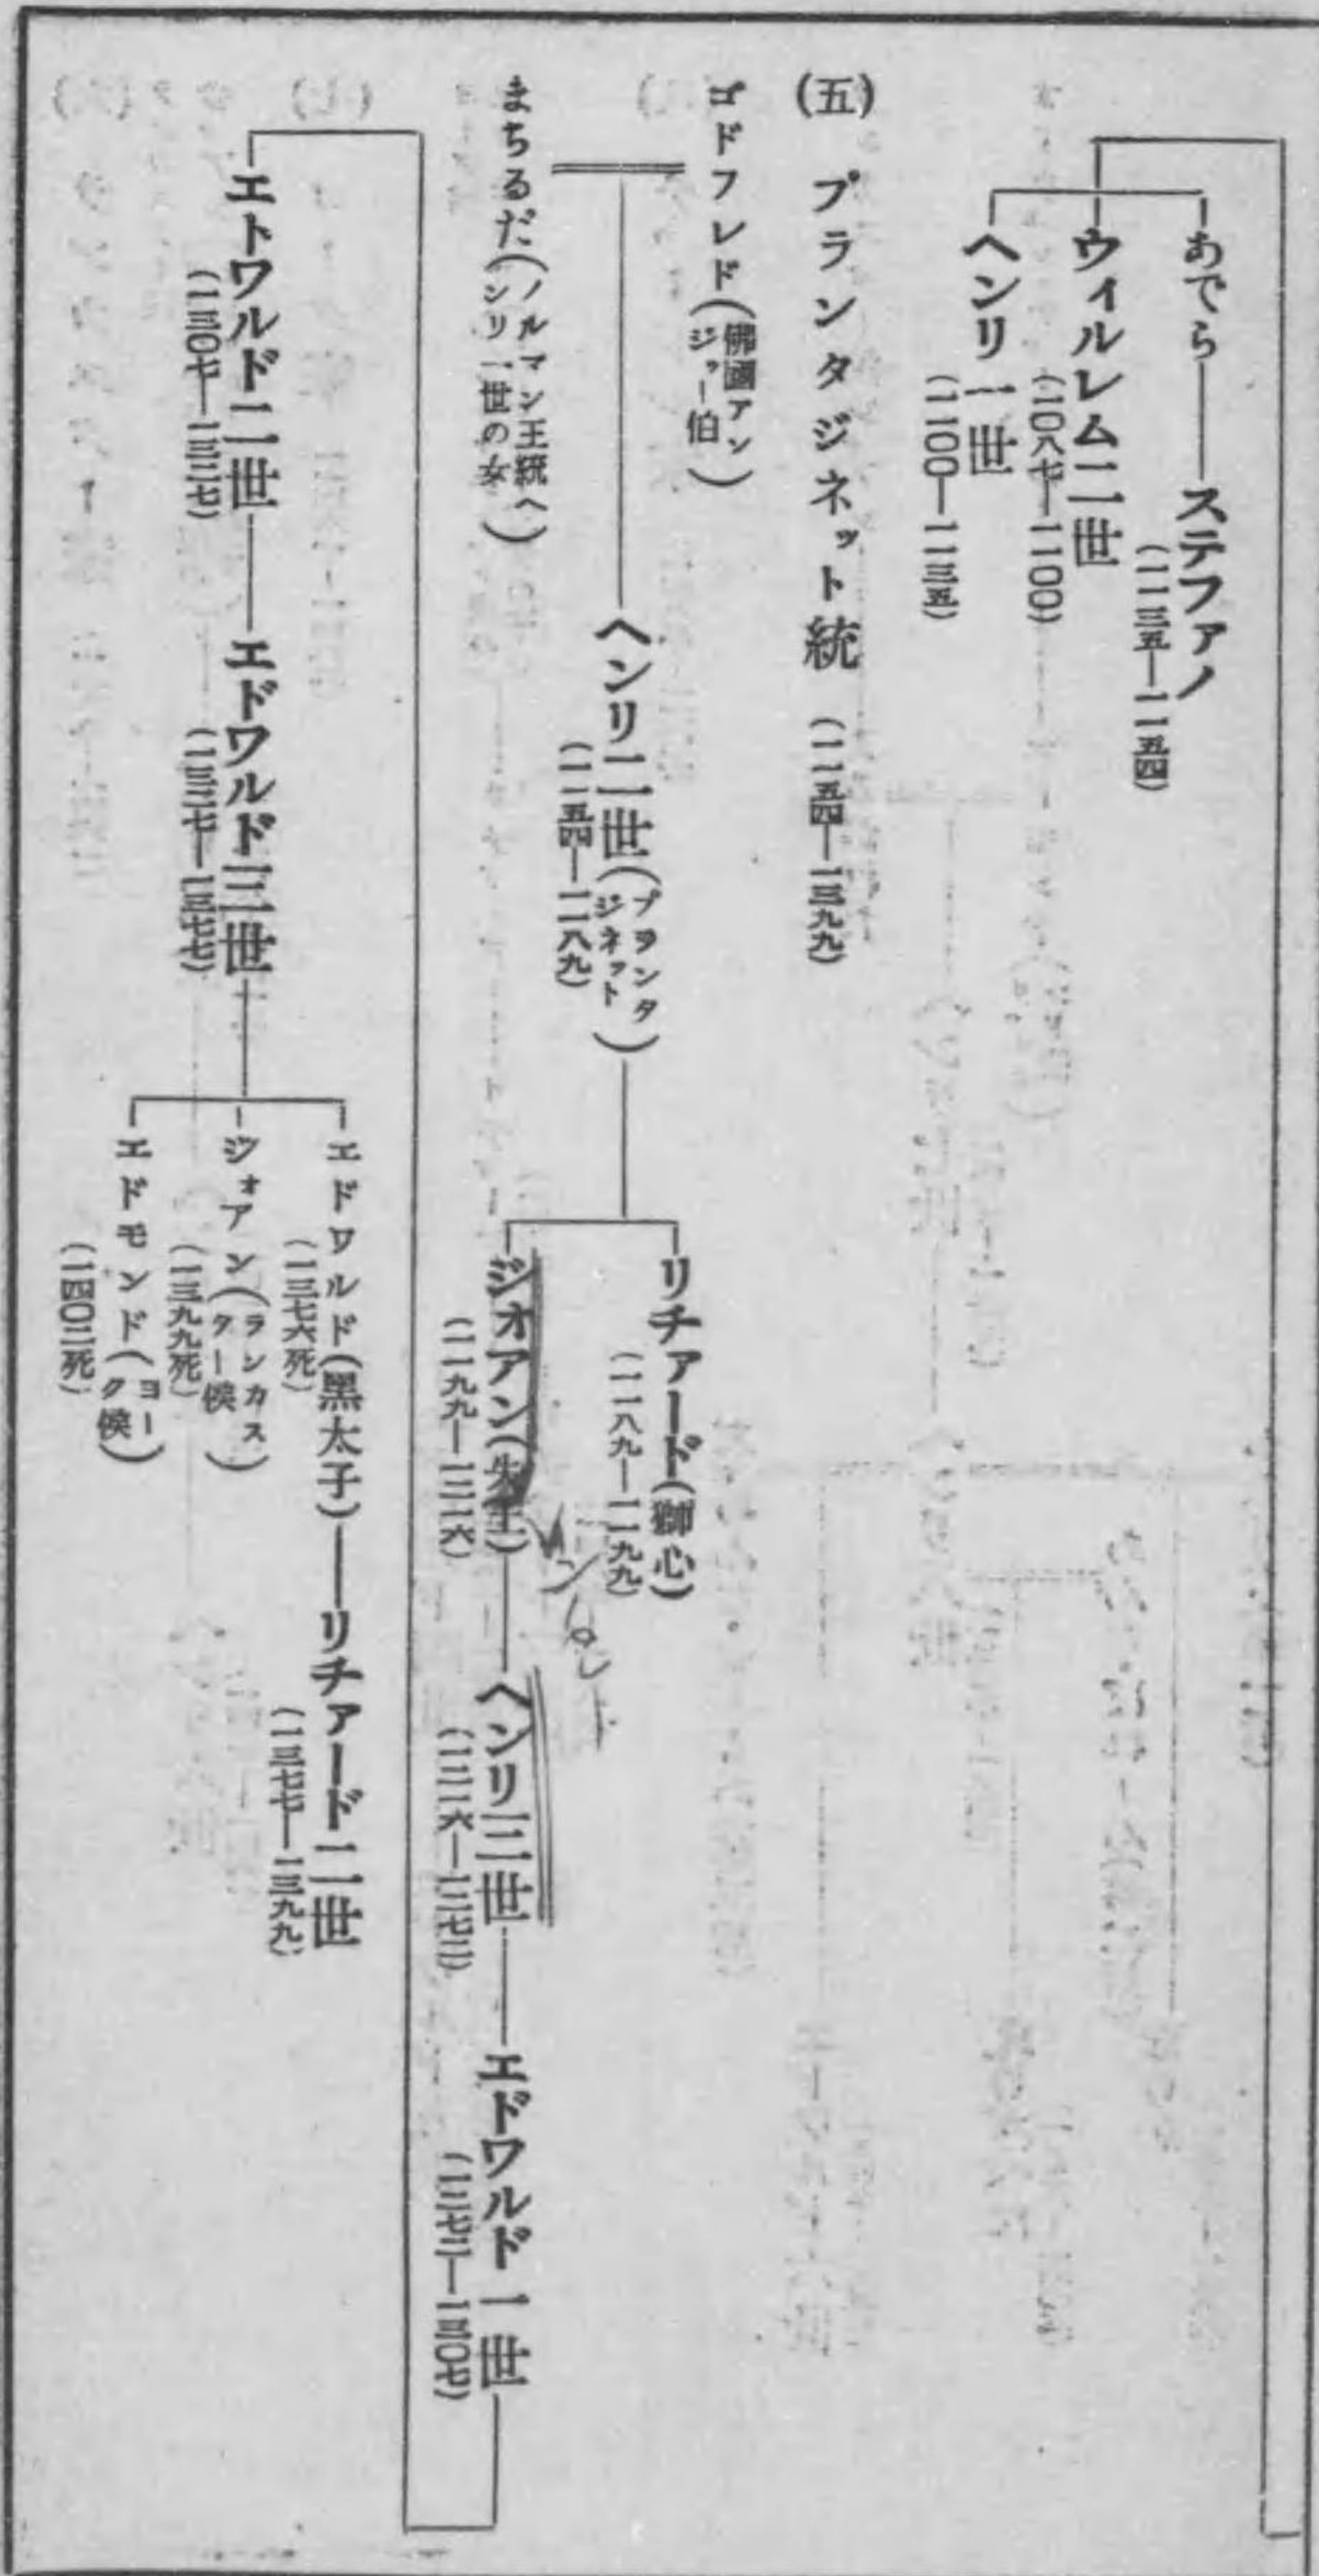 あでら
ステファノ
(一一三五—一一五四)
ウィルレム二世
(一〇八七—一一〇〇)
ヘンリ一世
(一一〇〇—一一三五)
(五) プランタジネット統 (一一五四—一三九九)
ゴドフレド(佛國アン
ジァー伯)
まちるだ(ノルマン王統ヘ
ンリ一世の女)
ヘンリ二世(プランタ
ジネット)
(一一五四—一一八九)
リチァード(獅心)
(一一八九—一一九九)
ジオアン(失王)
(一一九九—一二一六)
ヘンリ三世
(一二一六—一二七二)
エドワルド一世
(一二七二—一三〇七)
エトワルド二世
(一三〇七—一三二七)
エドワルド三世
(一三二七—一三七七)
エドワルド(黑太子)
(一三七六死)
リチァード二世
(一三七七—一三九九)
ジォアン(ランカス
ター侯)
(一三九九死)
エドモンド(ヨー
ク侯)
(一四〇二死)